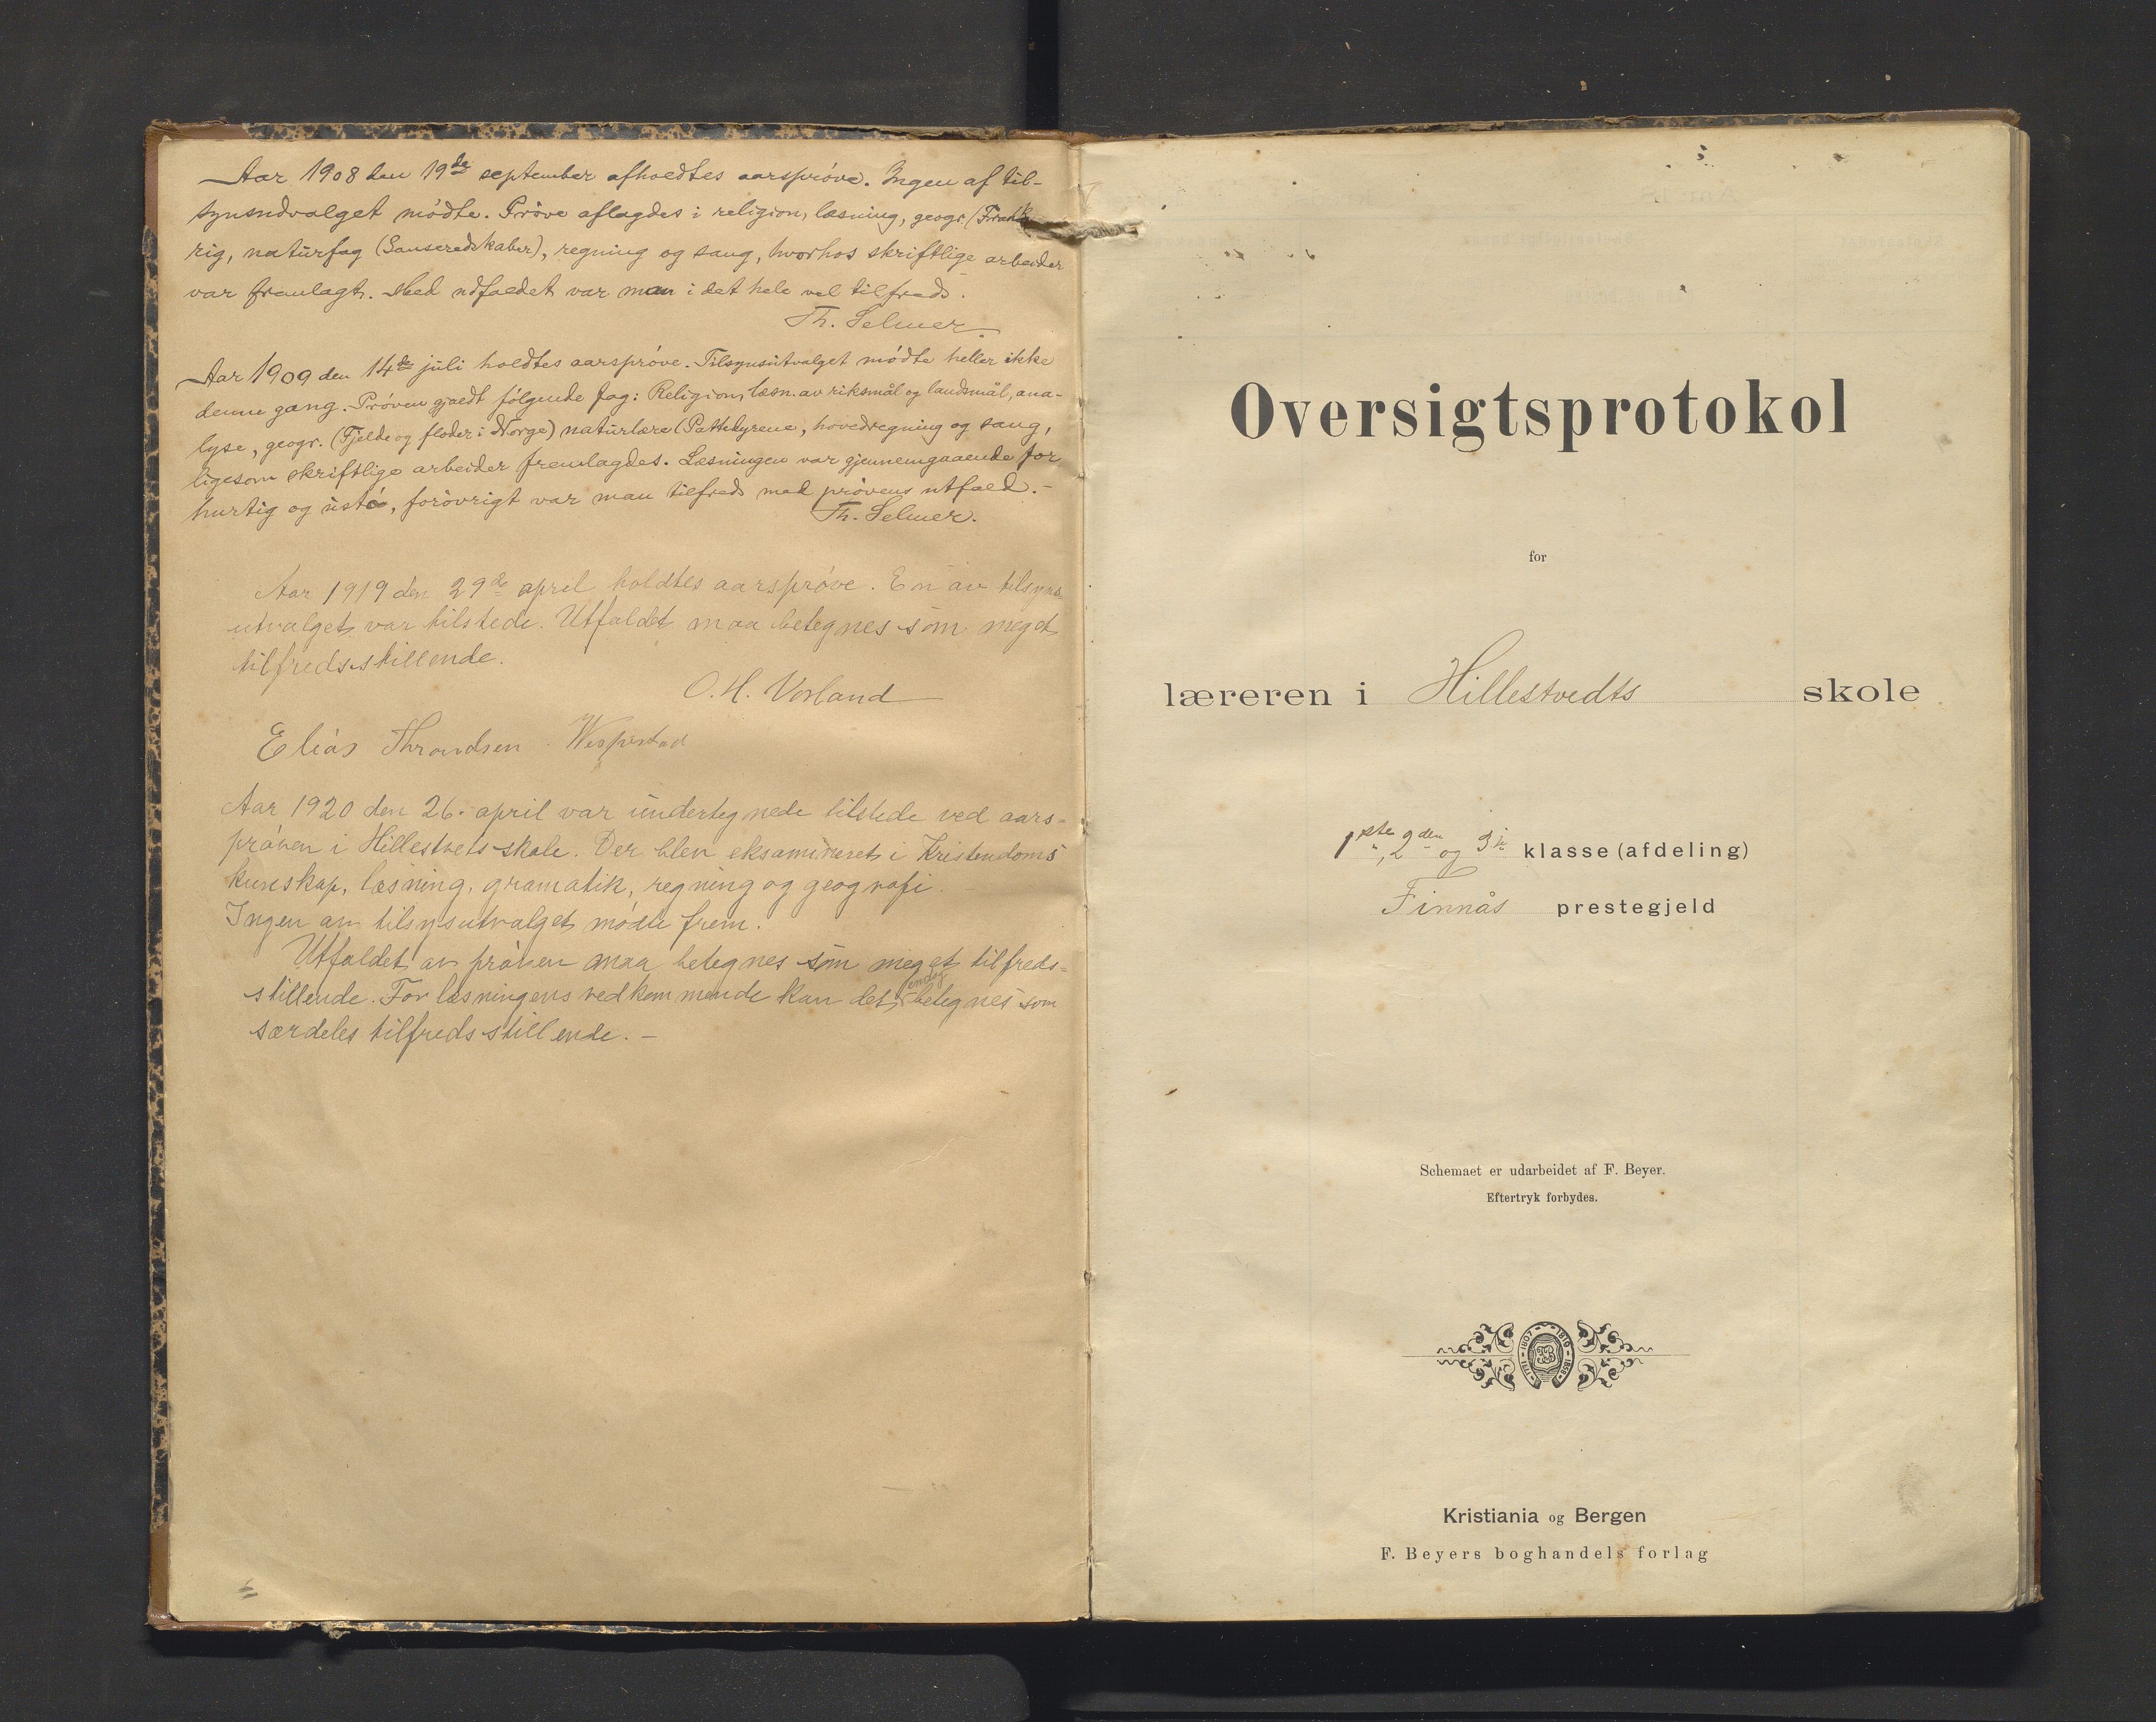 Aar 1908 den 19de september afholdtes aarsprøve. Ingen af til-
synsudvalget mødte. Prøve aflagdes i religion, læsning, geogr. (Frank-
rig, naturfag (Sanseredskaber), regning og sang, hvorhos skriftlige arbeider
var fremlagt. Med udfaldet var man i det hele vel tilfreds.
Th. Selmer.
Aar 1909 den 14de juli holdtes aarsprøve. Tilsynsutvalget mødte heller ikke
denne gang. Prøven gjaldt følgende fag: Religion, læsn. av riksmål og landsmål, ana-
lyse, geogr. (Fjelde og floder i Norge) naturlære (Pattedyrene, hovedregning og sang,
ligesom skriftlige arbeider fremlagdes. Læsningen var gjennemgaaende for
hurtig og ustø, forøvrigt var man tilfreds med prøvens utfald. -
Th. Selmer.
Aar 1919 den 29de april holdtes aarsprøve. En av tilsyns-
utvalget var tilstede. Utfaldet maa betegnes som meget
tilfredsstillende.
O. H. Vorland
Elias Throndsen Wespestad
Aar 1920 den 26. april var undertegnede tilstede ved aars-
prøven i Hillestvets skole. Der blev eksamineret i Kristendoms
kunskap, læsning, gramatik, regning og geografi. -
Ingen av tilsynsutvalget møtte frem.
Utfaldet av prøven maa betegnes som meget tilfreds-
stillende. For læsningens vedkommende kan det endog betegnes som
særdeles tilfredsstillende. -
Oversigtsprotokol
for
læreren i Hillestvedts skole
1ste, 2den og 3je klasse (afdeling)
Finnås prestegjeld
Schemaet er udarbeidet af F. Beyer.
Eftertryk forbydes.
1771 - 1807 - 1810 - 1858
Kristiania og Bergen
F. Beyers boghandels forlag